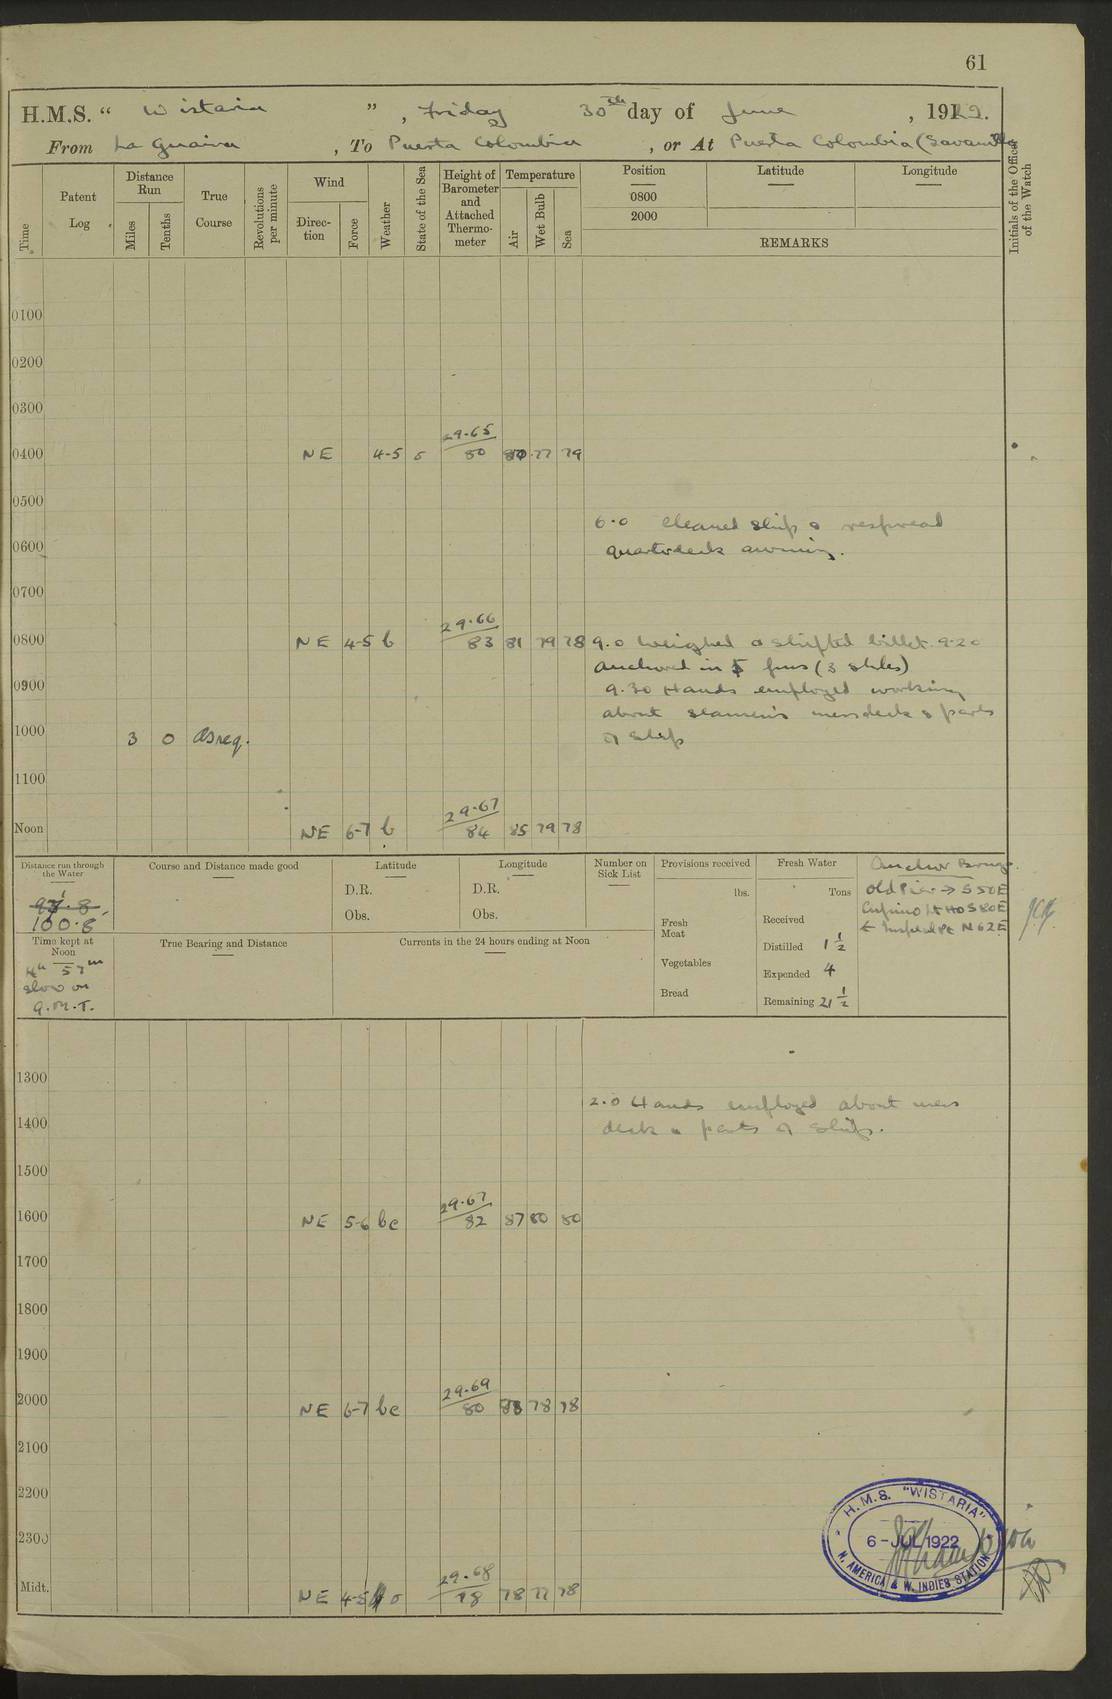 61
H.M.S. “ Wistaria ”, Friday 30th day of June, 1922.
From La Guaira, To Puerta Colombia, or At Puerta Colombia (Savanilla
Time
Patent Log
Distance Run
Miles
Tenths
True Course
Revolutions per minute
Wind
Direc-tion
Force
Weather
State of the Sea
Height of Barometer and Attached Thermo-meter
Temperature
Air
Wet Bulb
Sea
Position
0800
2000
Latitude
Longitude
REMARKS
Initials of the Officer of the Watch
0100
0200
0300
0400 NE 4-5 29.65 80 77 79
0500
6.0 Cleaned ship & respread
0600 quarterdeck awning.
0700
0800 NE 4-5 b 29.66 83 81 79 78 9.0 Weighed & shifted billet. 9.20
anchored in 5 fms (3 shkles)
0900 9.30 Hands employed working
about seamen's messdeck & parts
1000 3 0 as req. of ship
1100
Noon NE 6-7 b 29.67 84 85 79 78
Distance run through the Water
100.8
Time kept at Noon
4h 57m
slow on
G.M.T.
Course and Distance made good
True Bearing and Distance
Latitude
D.R.
Obs.
Longitude
D.R.
Obs.
Currents in the 24 hours ending at Noon
Number on Sick List
Provisions received
lbs.
Fresh Meat
Vegetables
Bread
Fresh Water
Tons
Received
Distilled 1 1/2
Expended 4
Remaining 21 1/2
Anchor Brngs.
Old Pier → S50E
Cupino Lt Ho S80E
N62E
1300
2.0 Hands employed about mess
1400 deck & parts of ship.
1500
1600 NE 5-6 bc 29.67 82 87 80 80
1700
1800
1900
2000 NE 6-7 bc 29.69 80 78 78
2100
2200
2300
Midt. NE 4-5 o 29.68 78 78 77 78
H.M.S. "WISTARIA"
6-JUL 1922
N. AMERICA & W. INDIES STATION